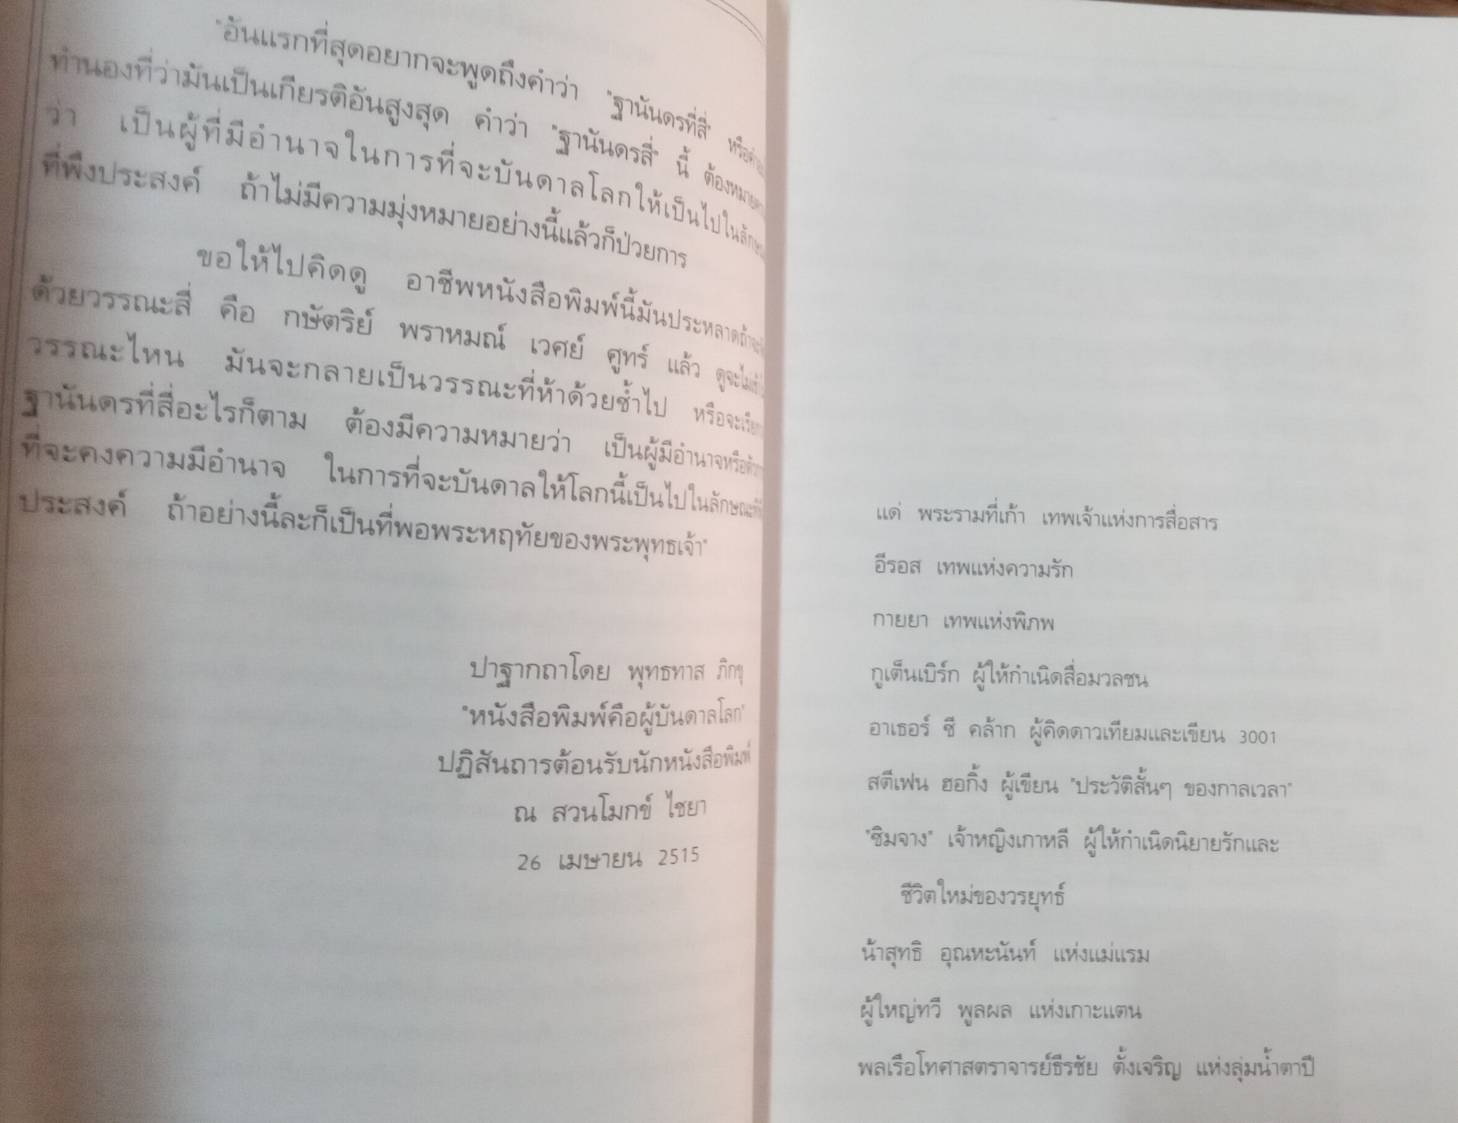 "อันแรกที่สุดอยากจะพูดถึงคำว่า "ฐานันดรที่สี่" หรือ
ทำนองที่ว่ามันเป็นเกียรติอันสูงสุด คำว่า "ฐานันดรสี่" นี้ ต้องหมาย
ว่า เป็นผู้ที่มีอำนาจในการที่จะบันดาลโลกให้เป็นไปใน
ที่พึงประสงค์ ถ้าไม่มีความมุ่งหมายอย่างนี้แล้วก็ป่วยการ
ขอให้ไปคิดดู อาชีพหนังสือพิมพ์นี้มันประหลาด
ด้วยวรรณะสี่ คือ กษัตริย์ พราหมณ์ เวศย์ ศูทร์ แล้ว ดูจะไม่
วรรณะไหน มันจะกลายเป็นวรรณะที่ห้าด้วยซ้ำไป หรือจะเรียก
ฐานันดรที่สี่อะไรก็ตาม ต้องมีความหมายว่า เป็นผู้มีอำนาจหรือ
ที่จะคงความมีอำนาจ ในการที่จะบันดาลให้โลกนี้เป็นไปในลักษณะ
ประสงค์ ถ้าอย่างนี้ละก็เป็นที่พอพระหฤทัยของพระพุทธเจ้า"
ปาฐากถาโดย พุทธทาส ภิกขุ
"หนังสือพิมพ์คือผู้บันดาลโลก"
ปฏิสันถารต้อนรับนักหนังสือพิมพ์
ณ สวนโมกข์ ไชยา
26 เมษายน 2515
แด่ พระรามที่เก้า เทพเจ้าแห่งการสื่อสาร
อีรอส เทพแห่งความรัก
กายยา เทพแห่งพิภพ
กูเต็นเบิร์ก ผู้ให้กำเนิดสื่อมวลชน
อาเธอร์ ซี คล้าก ผู้คิดดาวเทียมและเขียน 3001
สตีเฟน ฮอกิ้ง ผู้เขียน "ประวัติสั้นๆ ของกาลเวลา"
"ซิมจาง" เจ้าหญิงเกาหลี ผู้ให้กำเนิดนิยายรักและ
ชีวิตใหม่ของวรยุทธ์
น้าสุทธิ อุณหะนันท์ แห่งแม่แรม
ผู้ใหญ่ทวี พูลผล แห่งเกาะแตน
พลเรือโทศาสตราจารย์ธีรชัย ตั้งเจริญ แห่งลุ่มน้ำตาปี